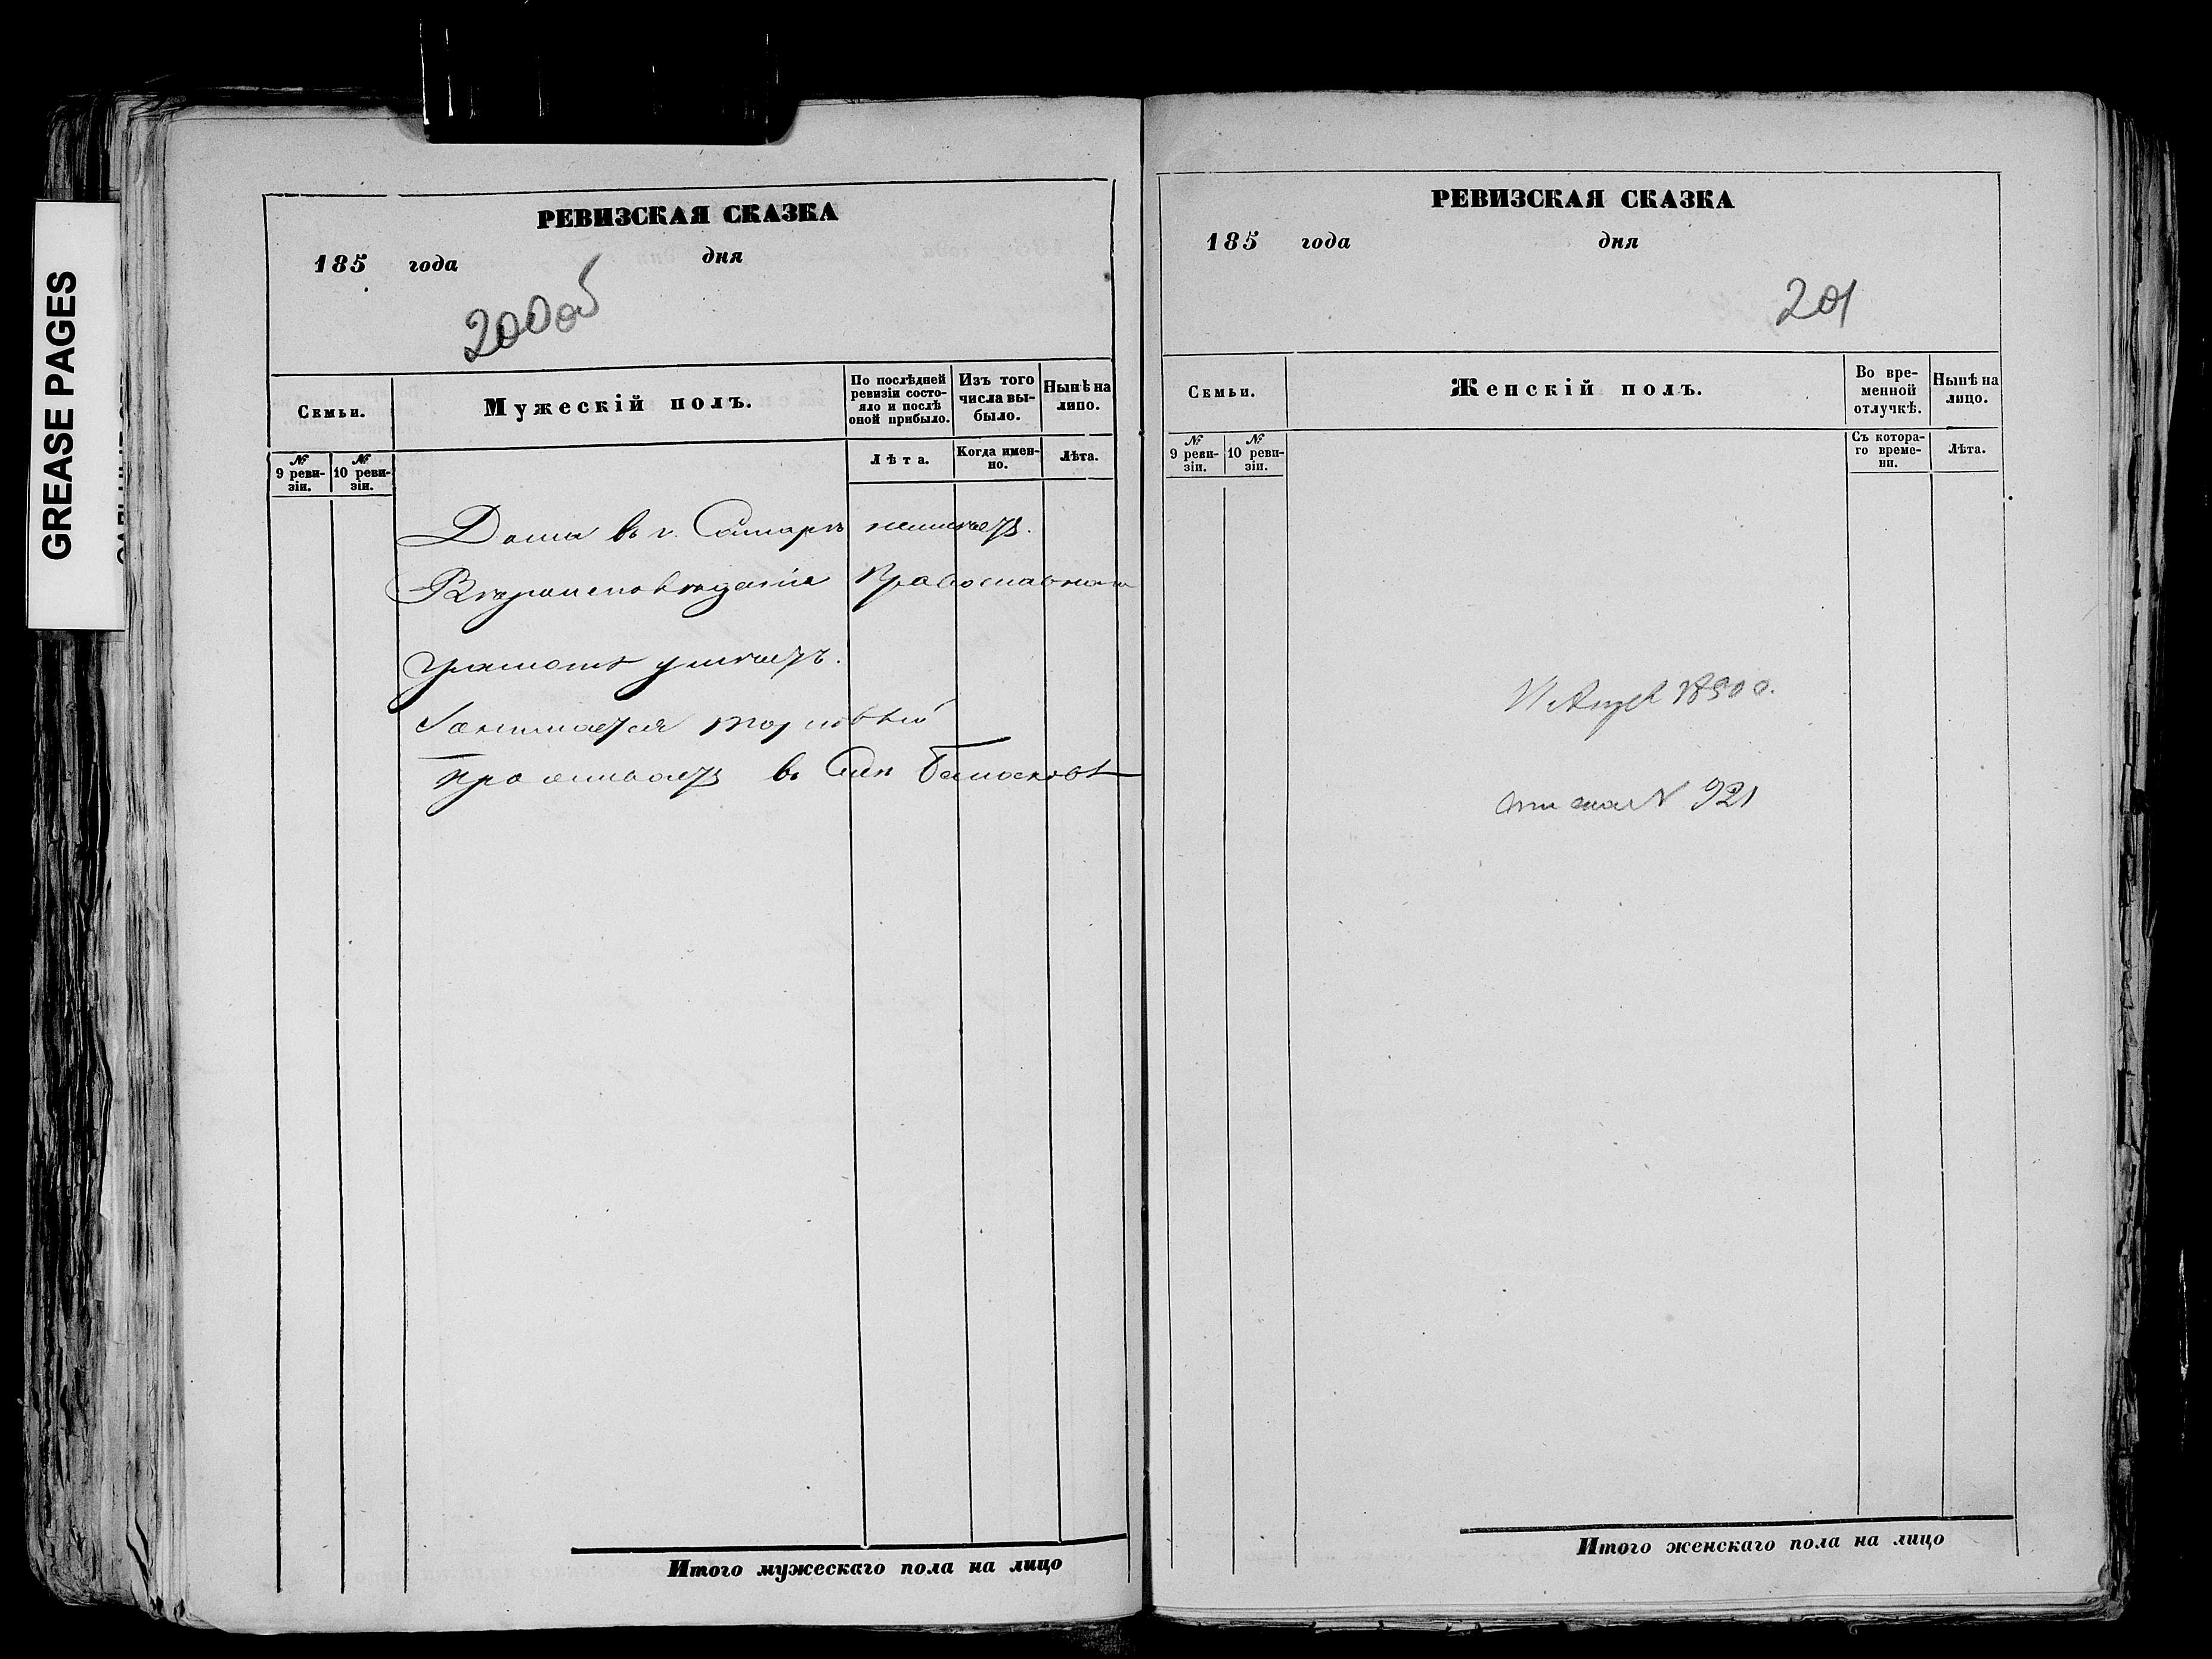 GREASE PAGES
РЕВИЗСКАЯ СКАЗКА
185 года дня
200об
Семьи.
Мужескій полъ.
По послѣдней ревизіи состояло и послѣ оной прибыло.
Изъ того числа выбыло.
Нынѣ на лицо.
№ 9 ревизіи.
№ 10 ревизіи.
Лѣта.
Когда именно.
Лѣта.
Дома въ г. Самарѣ неимѣетъ.
Вѣроисповѣданія Православнаго
Грамотѣ умѣетъ.
Занимается торговлей
проживаетъ въ
Итого мужескаго пола на лицо
РЕВИЗСКАЯ СКАЗКА
185 года дня
201
Семьи.
Женскій полъ.
Во временной отлучкѣ.
Нынѣ на лицо.
№ 9 ревизіи.
№ 10 ревизіи.
Съ котораго времени.
Лѣта.
№ 921
Итого женскаго пола на лицо